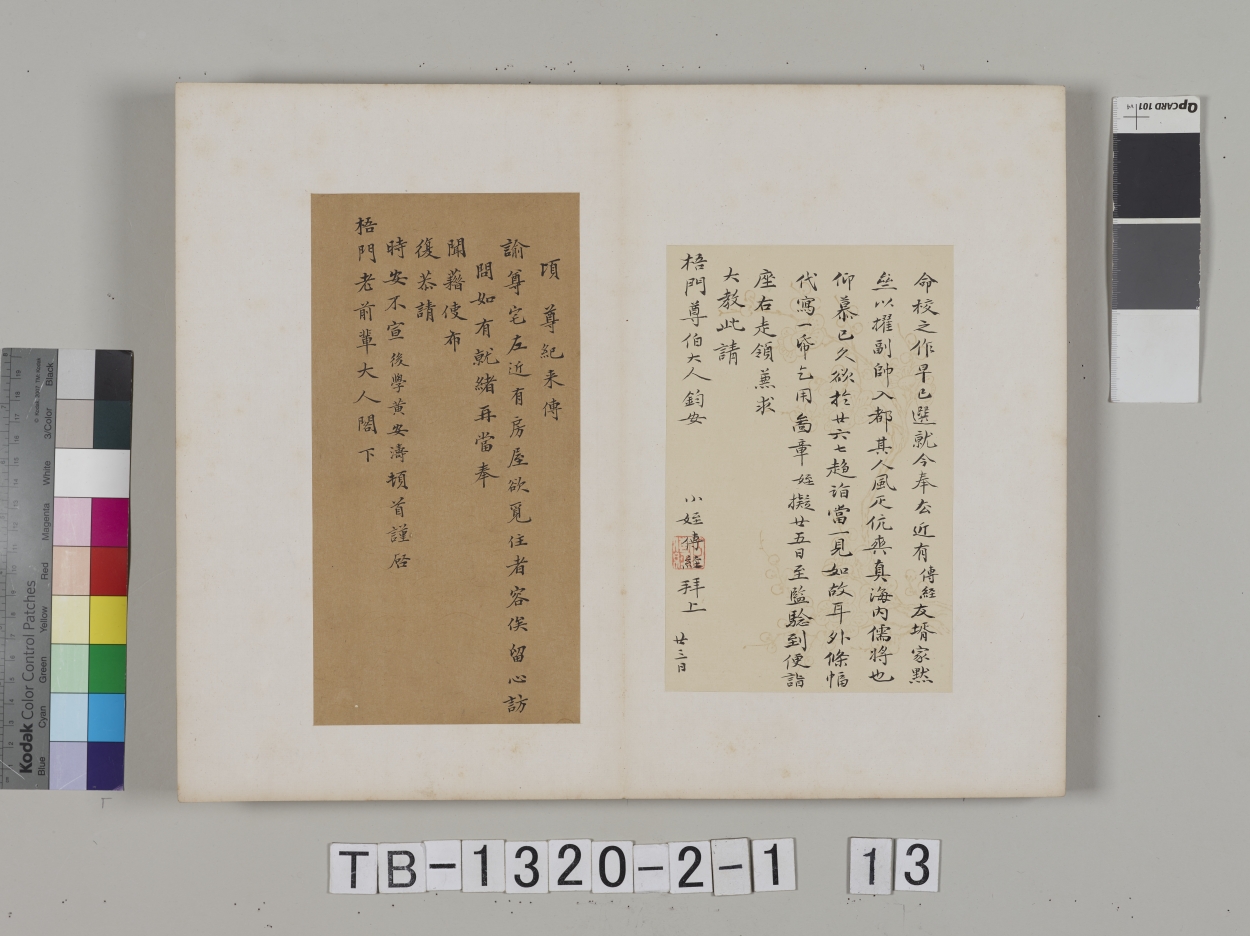 命校之作早已選就今奉去近有傅經友壻家默
齋以擢副帥入都其人風雅伉爽真海內儒將也
仰慕已久欲於廿六七趨詣當一見如故耳外條幅
代寫一帋乞用啚章姪擬廿五日至監驗到便詣
座右走領兼求
大教此請
梧門尊伯大人鈞安
小姪傅經拜上
廿三日
頃 尊紀来傳
諭尊宅左近有房屋欲覓住者容俟留心訪
問如有就緒再當奉
聞藉使布
復恭請
時安不宣 後學黃安濤頓首謹啓
梧門老前輩大人閤下
QPCARD 101 v4
Kodak Color Control Patches
© Kodak
Blue Cyan Green Yellow Red Magenta White 3/Color Black
TB-1320-2-1 13